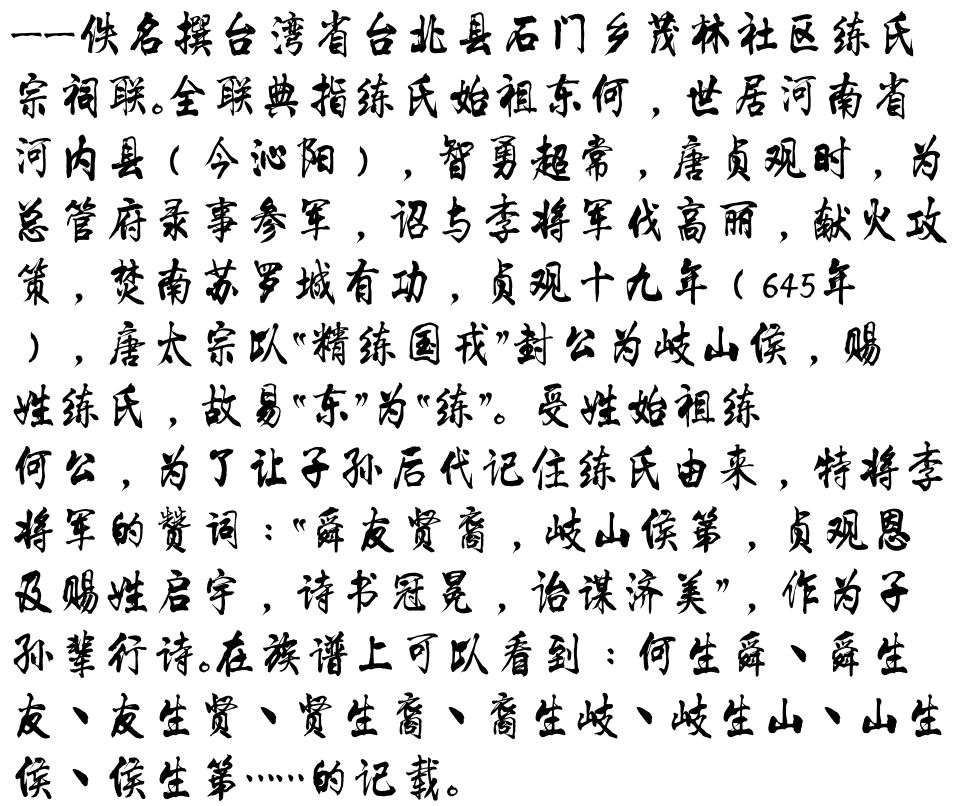 ——佚名撰台湾省台北县石门乡茂林社区练氏
宗祠联。全联典指练氏始祖东何，世居河南省
河内县（今沁阳），智勇超常，唐贞观时，为
总管府录事参军，诏与李将军伐高丽，献火攻
策，焚南苏罗城有功，贞观十九年（645年
），唐太宗以“精练国戎”封公为岐山侯，赐
姓练氏，故易“东”为“练”。受姓始祖练
何公，为了让子孙后代记住练氏由来，特将李
将军的赞词：“舜友贤裔，岐山侯第，贞观恩
及赐姓启宇，诗书冠冕，诒谋济美”，作为子
孙辈行诗。在族谱上可以看到：何生舜、舜生
友、友生贤、贤生裔、裔生岐、岐生山、山生
侯、侯生第……的记载。